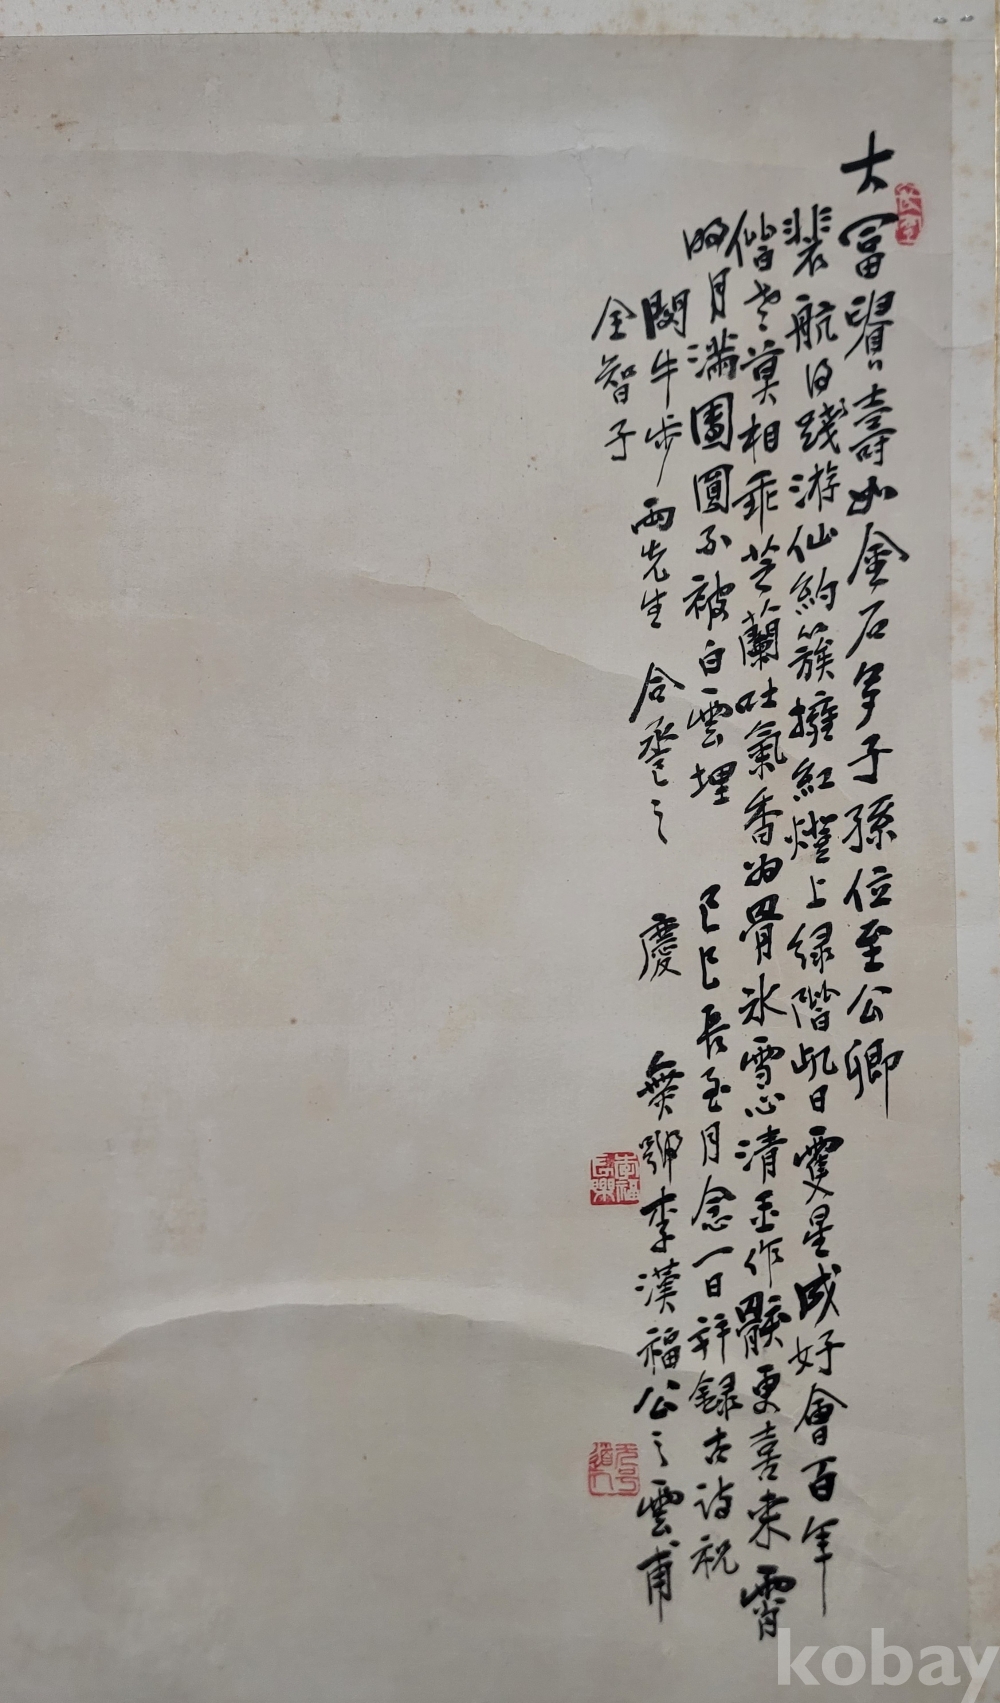 大富貴壽如金石多子孫位至公卿
裴航得踐游仙約簇擁紅燈上綠階此日雙星成好會百年
偕老莫相乖芝蘭吐氣香為骨冰雪心清玉作骸更喜來宵
明月滿團圓不被白雲埋 己巳長至月念一日拜錄古詩祝
閔牛步兩先生 合巹之 慶 無號李漢福公之雲甫
全智子
kobay